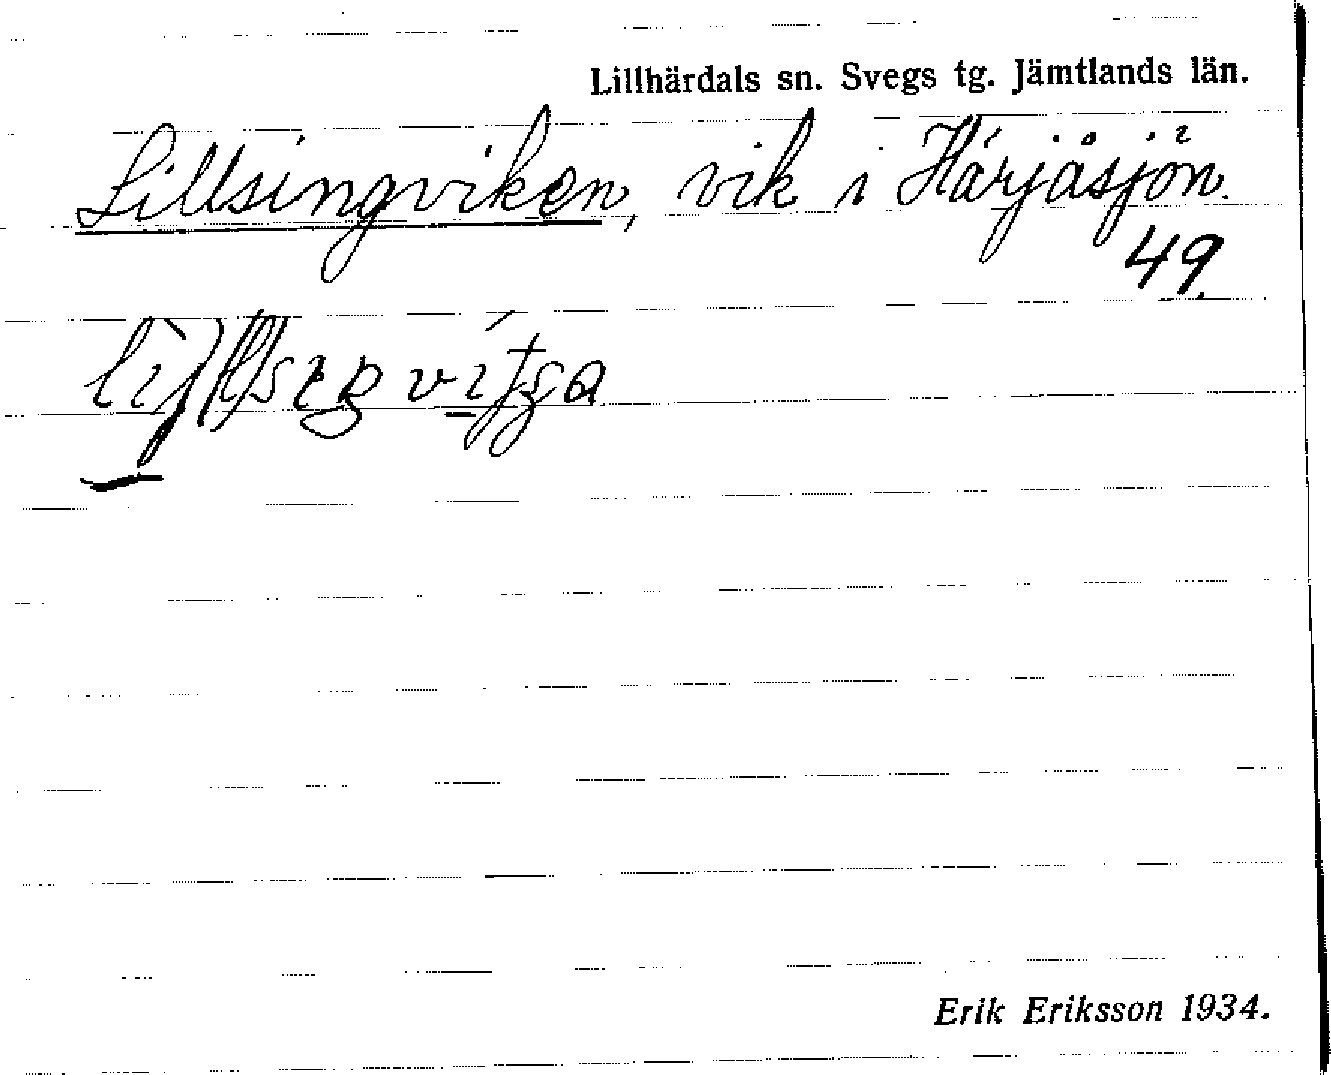 Lillhärdals sn. Svegs tg. Jämtlands län.
Lillsingviken, vik i Härjåsjön.
49.
Erik Eriksson 1934.